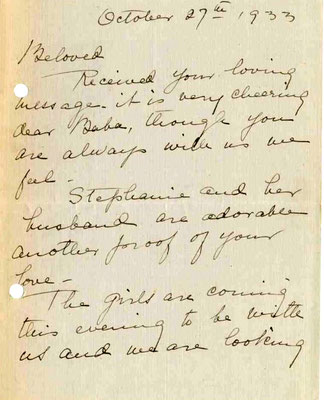 October 27th 1933
Beloved
Received your loving
message - it is very cheering
dear Baba, though you
are always with us we
feel -
Stephanie and her
husband are adorable
another proof of your
love -
The girls are coming
this evening to be with
us and we are looking